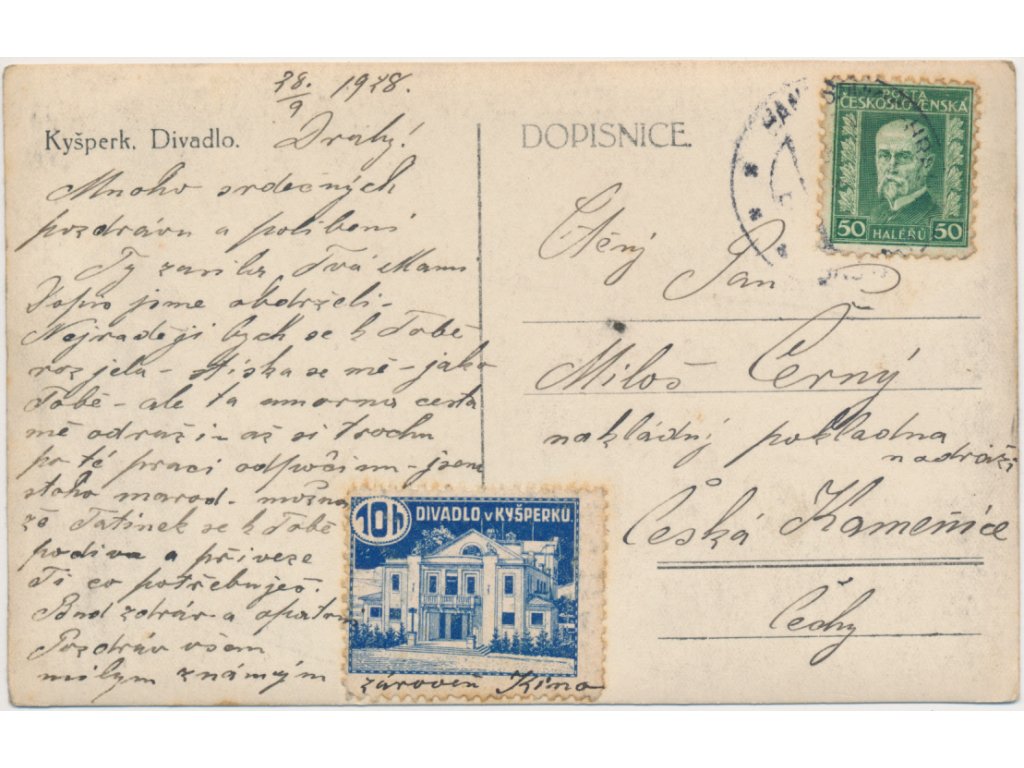 28./9 1928.
Kyšperk. Divadlo.
Drahý!
Mnoho srdečných
pozdravu a políbení
Ty zasílá Tvá Mama
jsme obdrželi-
Nejraději bych se k Tobě
rozjela - stýská se mě - jako
Tobě - ale ta umorna cesta
mě odraží - až si trochu
po té praci odpočinu - jsem
stoho marod - možna
že Tatínek se k Tobě
podiva a přiveze
Ti co potřebuješ.
Buď zdráv a opatrn
Pozdrav všem
milym známým
DOPISNICE.
POŠTA
ČESKOSLOVENSKÁ
50 HALÉŘŮ 50
Ctěný Pan
Miloš Černý
nakládný pokladna
nadraží
Česká Kamenice
Čechy
10h DIVADLO v KYŠPERKU.
zároveň Kino